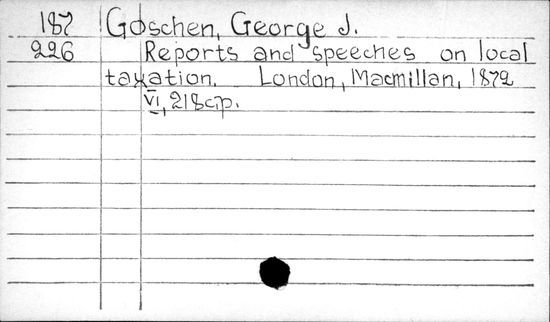 187 Goschen, George J.
226 Reports and speeches on local
taxation. London, Macmillan, 1872
VI, 218 c,p.